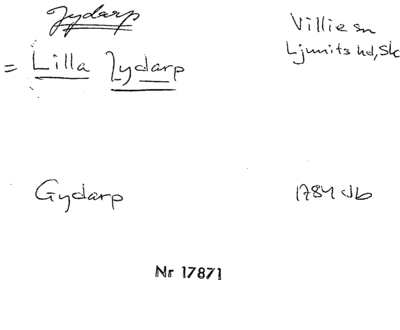 Jydarp
Villie sn
Ljunits hd, Sk
= Lilla Jydarp
Gydarp
1784 Jb
Nr 17871